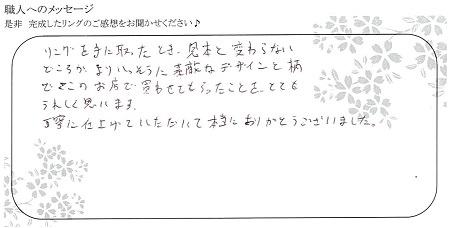 職人へのメッセージ
是非 完成したリングのご感想をお聞かせください♪
リングを手に取ったとき、見本と変わらない
どころか、よりいっそうに素敵なデザインと柄
でこのお店で買わせてもらったことを、とても
うれしく思います。
丁寧に仕上げていただいて本当にありがとうございました。